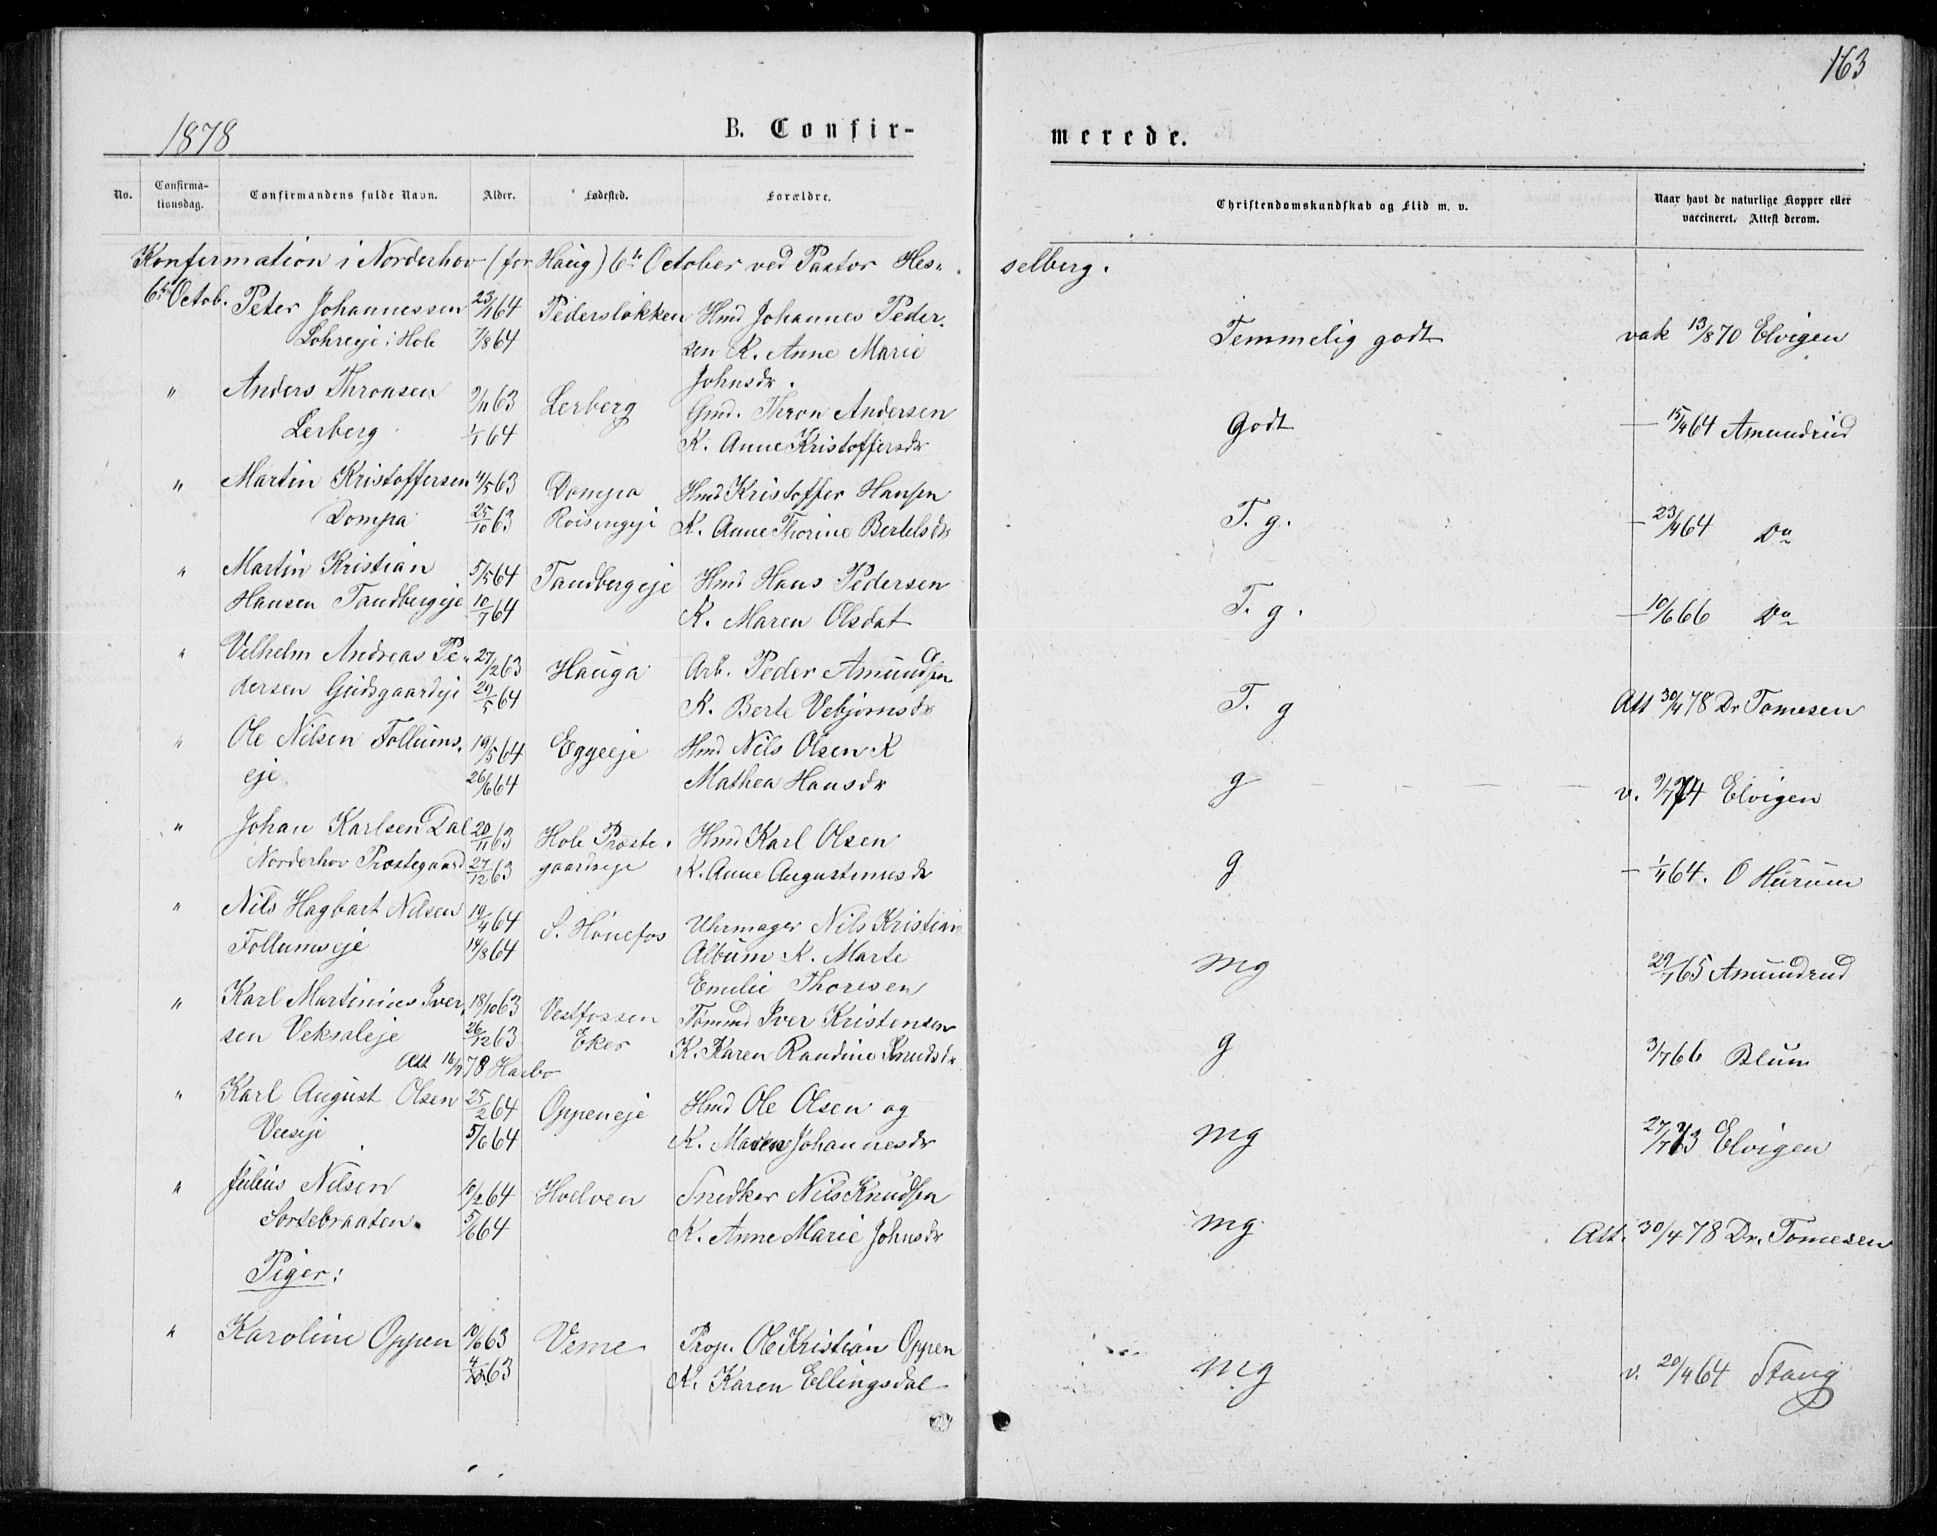 163
1878
B. Confir-
merede.
No.
Confirma-
tionsdag.
Confirmandens fulde Navn.
Alder.
Fødested.
Forældre.
Christendomskundskab og Flid m. v.
Naar havt de naturlige Kopper eller
vaccineret. Attest derom.
Konfirmation i Norderhov (for Haug) 6te October ved Pastor Hes-
selberg.
6te Octob. Peter Johannessen 23/1 64 Pedersløkken Hmd Johannes Peder-
Lohreje i Hole 7/8 64 sen K. Anne Marie
Johnsdr.
Temmelig godt vak 13/8 70 Elvigen
" Anders Thronsen 9/11 63 Lerberg Gmd. Thron Andersen
Lerberg 1/1 64 K. Anne Kristoffersdr
Godt — 15/4 64 Amundrud
" Martin Kristoffersen 4/5 63 Dompa Hmd Kristoffer Hansen
Dompa 25/10 63 Roisengeje K. Anne Thorine Bertelsdr
T. g. — 23/4 64 Do
" Martin Kristian 5/5 64 Tandbergeje Hmd Hans Pedersen
Hansen Tandbergeje 10/7 64 K. Maren Olsdat
T. g. — 10/6 66 Do
" Vilhelm Andreas Pe- 27/12 63 Hauga Arb. Peder Amundsen
dersen Gudsgaardeje 29/5 64 K. Berte Vebjørnsdr
T. g Att 30/4 78 Dr Tomesen
" Ole Nilsen Follums- 19/5 64 Eggeeje Hmd Nils Olsen K
eje. 26/6 64 Mathea Hansdr
g v. 9/7 74 Elvigen
" Johan Karlsen Dal 20/11 63 Hole Præste- Hmd Karl Olsen
Norderhov Præstegaard 27/12 63 gaardseje K. Anne Augustinusdr
g — 1/4 64. O Hurum
" Nils Hagbart Nilsen 19/4 64 S. Hønefos Uhrmager Nils Kristian
Follumseje 14/8 64 Album K. Marte
Emilie Thoresen
mg 29/1 65 Amundrud
" Karl Martinius Iver- 18/10 63 Vestfossen Tømmd Iver Kristensen
sen Veksaleje 26/12 63 Eker K. Karen Randine Knudsdr
Att 78 Harbo
g 3/7 66 Blum
" Karl August Olsen 25/2 64 Oppeneje Hmd Ole Olsen og
Veseje 5/6 64 K. Maren Johannesdr
mg 27/7 73 Elvigen
" Julius Nilsen 10/2 64 Hvelven Snedker Nils Knudsen
Sortebraaten. 5/6 64 K. Anne Marie Johnsdr
mg. Att. 30/4 78 Dr. Tomesen
Piger:
" Karoline Oppen 10/6 63 Veme Prop. Ole Kristian Oppen
63 K. Karen Ellingsdal
mg v. 20/4 64 Stang